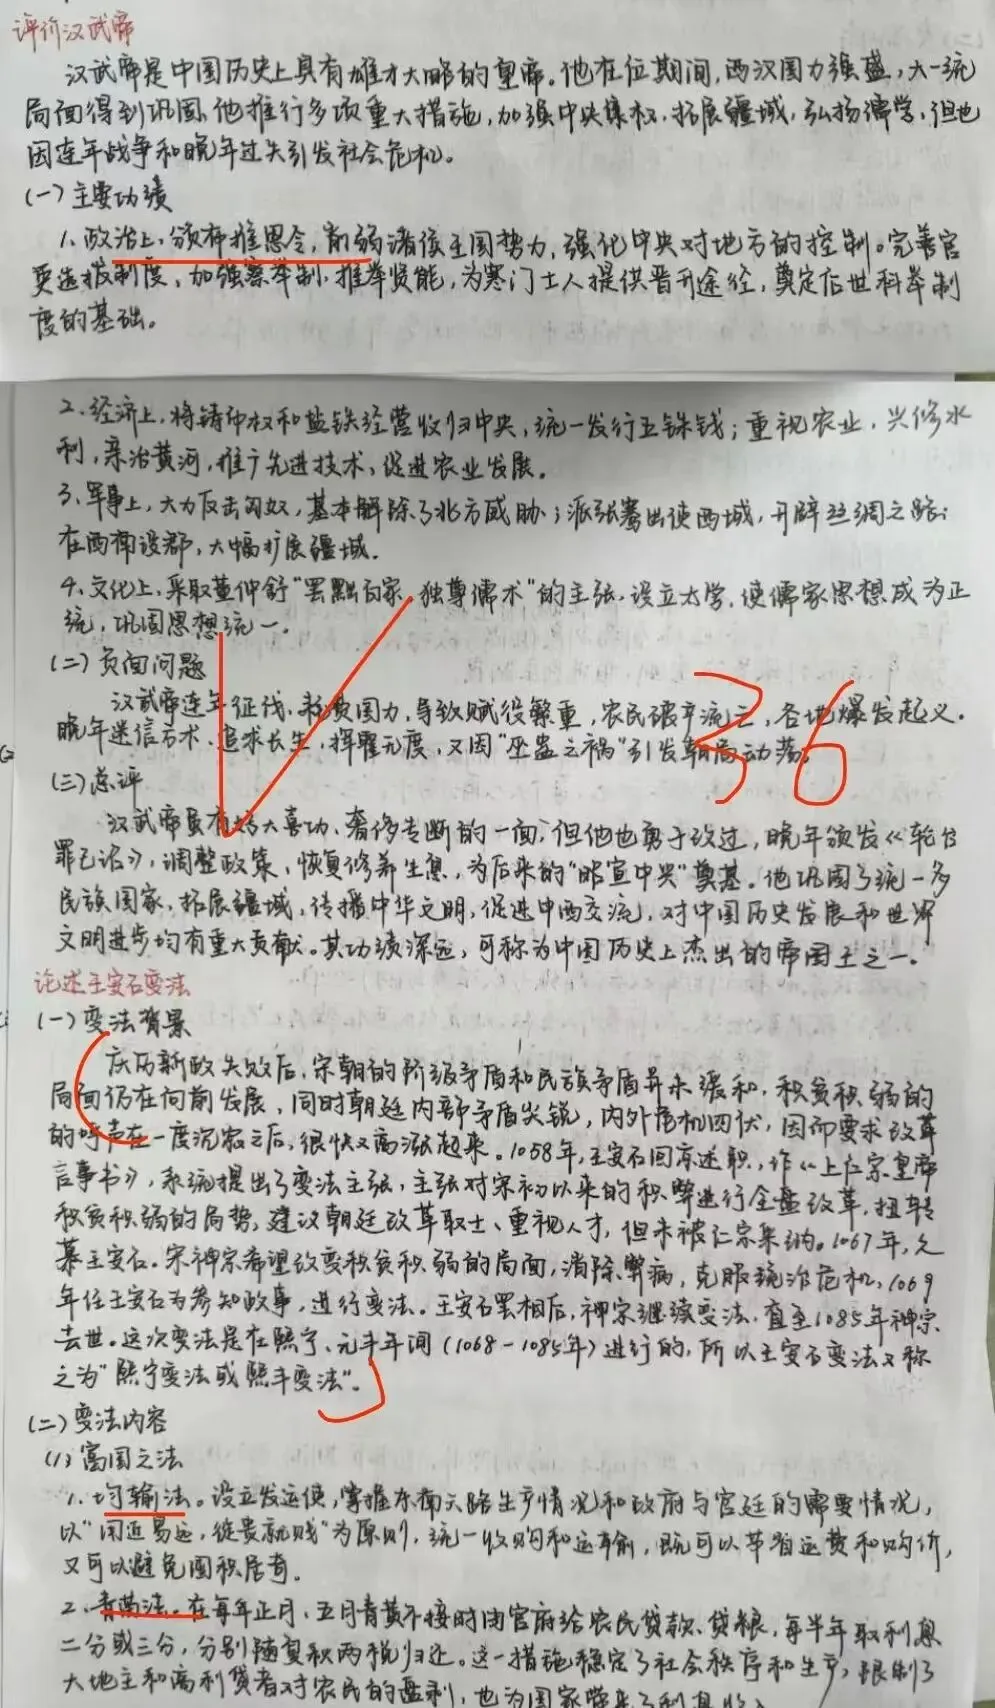 评价汉武帝
汉武帝是中国历史上具有雄才大略的皇帝。他在位期间,西汉国力强盛,大一统
局面得到巩固,他推行多项重大措施,加强中央集权,拓展疆域,弘扬儒学,但也
因连年战争和晚年过失引发社会危机。
(一)主要功绩
1、政治上,颁布推恩令,削弱诸侯王国势力,强化中央对地方的控制。完善官
吏选拔制度,加强察举制,推举贤能,为寒门士人提供晋升途径,奠定后世科举制
度的基础。
2、经济上,将铸币权和盐铁经营收归中央,统一发行五铢钱;重视农业,兴修水
利,亲治黄河,推广先进技术,促进农业发展。
3、军事上,大力反击匈奴,基本解除了北方威胁;派张骞出使西域,开辟丝绸之路;
在西南设郡,大幅扩展疆域.
4、文化上,采取董仲舒“罢黜百家,独尊儒术”的主张,设立太学,使儒家思想成为正
统,巩固思想统一.
(二)负面问题
汉武帝连年征伐,耗费国力,导致赋役繁重,农民破产流亡,各地爆发起义.
晚年迷信方术、追求长生,挥霍无度,又因“巫蛊之祸”引发朝局动荡。
36
(三)总评
汉武帝虽有好大喜功、奢侈专断的一面,但他也勇于改过,晚年颁发《轮台
罪己诏》,调整政策,恢复修养生息,为后来的“昭宣中兴”奠基。他巩固了统一多
民族国家,拓展疆域,传播中华文明,促进中西交流,对中国历史发展和世界
文明进步均有重大贡献。其功绩深远,可称为中国历史上杰出的帝国王之一.
论述王安石变法
(一)变法背景
庆历新政失败后,宋朝的阶级矛盾和民族矛盾并未缓和,积贫积弱的
局面仍在向前发展,同时朝廷内部矛盾尖锐,内外危机四伏,因而要求改革
的呼声在一度沉寂之后,很快又高涨起来。1058年,王安石回京述职,作《上仁宗皇帝
言事书》,系统提出了变法主张,主张对宋初以来的积弊进行全盘改革,扭转
积贫积弱的局势,建议朝廷改革取士、重视人才,但未被仁宗采纳。1067年,久
慕王安石。宋神宗希望改变积贫积弱的局面,消除弊病,克服统治危机,1069
年任王安石为参知政事,进行变法。王安石罢相后,神宗继续变法,直至1085年神宗
去世。这次变法是在熙宁、元丰年间(1068-1085年)进行的,所以王安石变法又称
之为“熙宁变法或熙丰变法”。
(二)变法内容
(1)富国之法
1、均输法。设立发运使,掌握东南六路生产情况和政府与宫廷的需要情况,
以“用近易远,徙贵就贱”为原则,统一收购和运输,既可以节省运费和购价,
又可以避免囤积居奇.
2、青苗法。在每年正月、五月青黄不接时由官府给农民贷款、贷粮,每半年取利息
二分或三分,分别随夏秋两税归还。这一措施稳定了社会秩序和生产,限制了
大地主和高利贷者对农民的盘剥,也为国家带来了利息收入